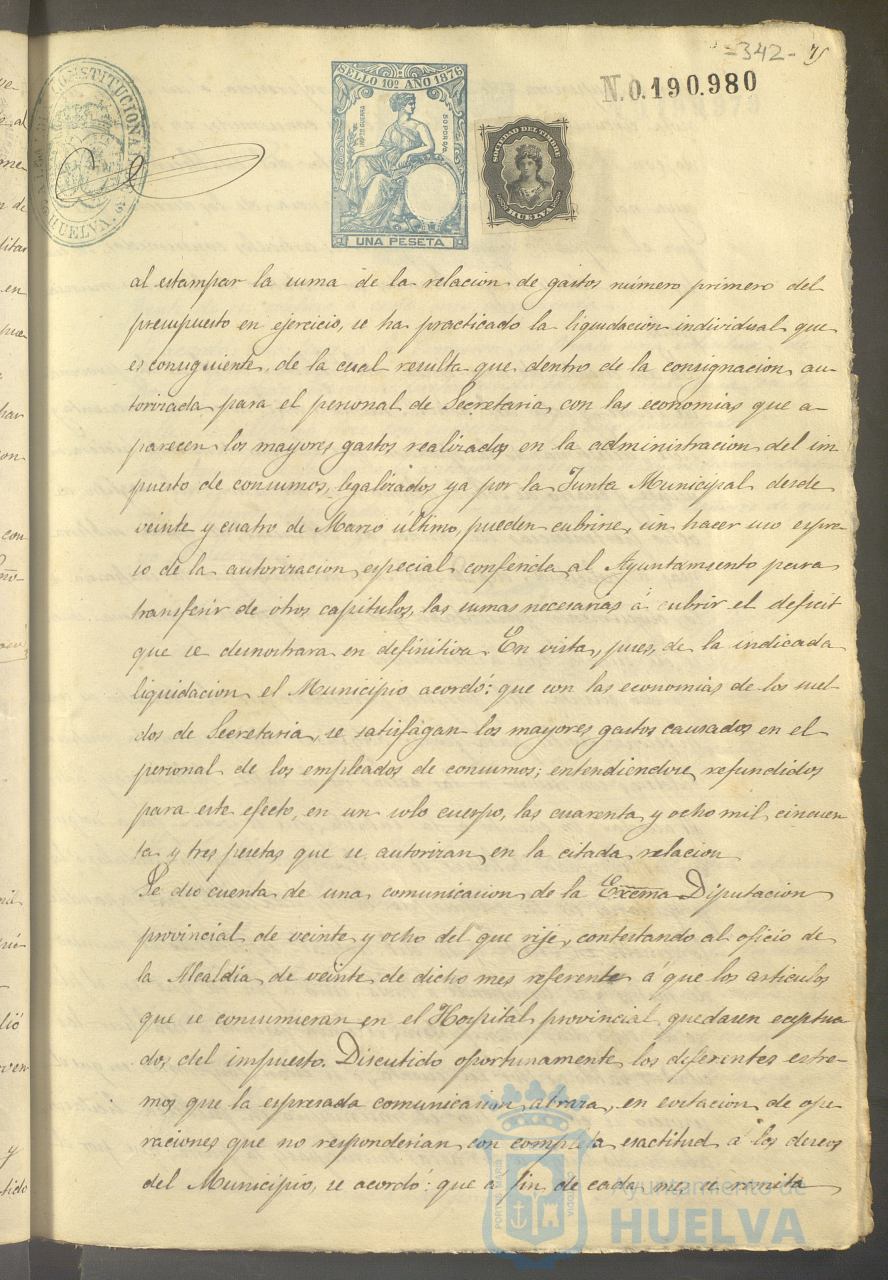 =342=
75
N.0.190.980
CONSTITUCIONAL
HUELVA.
SELLO 10º AÑO 1876
IMPTO GUERRA
50 POR 0/0
UNA PESETA
SOCIEDAD DEL TIMBRE
HUELVA
al estampar la suma de la relacion de gastos número primero del
presupuesto en ejercicio, se ha practicado la liquidacion individual que
es consiguiente, de la cual resulta que dentro de la consignacion au-
torizada para el personal de Secretaria, con las economias que a-
parecen los mayores gastos realizados en la administracion del im
puesto de consumos, legalizados ya por la Junta Municipal desde
veinte y cuatro de Marzo último, pueden cubrirse, sin hacer uso espre-
so de la autorizacion especial conferida al Ayuntamiento para
transferir de otros capitulos, las sumas necesarias á cubrir el deficit
que se demostrara en definitiva. En vista, pues, de la indicada
liquidacion el Municipio acordó: que con las economias de los suel-
dos de Secretaria, se satisfagan los mayores gastos causados en el
personal de los empleados de consumos; entendiendose, refundidos
para este efecto, en un solo cuerpo, las cuarenta y ocho mil, cincuen
ta y tres pesetas que se autorizan en la citada relacion
Se dio cuenta de una comunicacion de la Excma Diputacion
provincial de veinte y ocho del que rije, contestando al oficio de
la Alcaldia de veinte de dicho mes referente á que los articulos
que se consumieran en el Hospital provincial quedasen eceptua
dos del impuesto. Discutido oportunamente los diferentes estre-
mos que la espresada comunicasion abraza, en evitacion de ope
raciones que no responderian con completa esactitud á los deseos
del Municipio, se acordó: que á fin de cada mes se remita
PORTUS MARIS
CUSTODIA
Ayuntamiento de
HUELVA